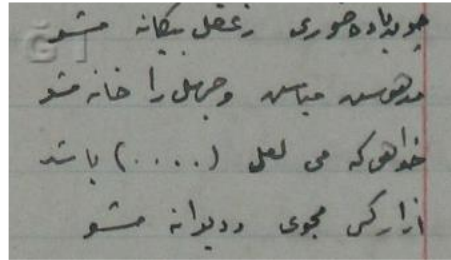 چون باده خوری ز عقل بیگانه مشو
مدهوش مباش و جهل را خانه مشو
خواهی که می لعل (....) باشد
آزار کسی مجوی و دیوانه مشو